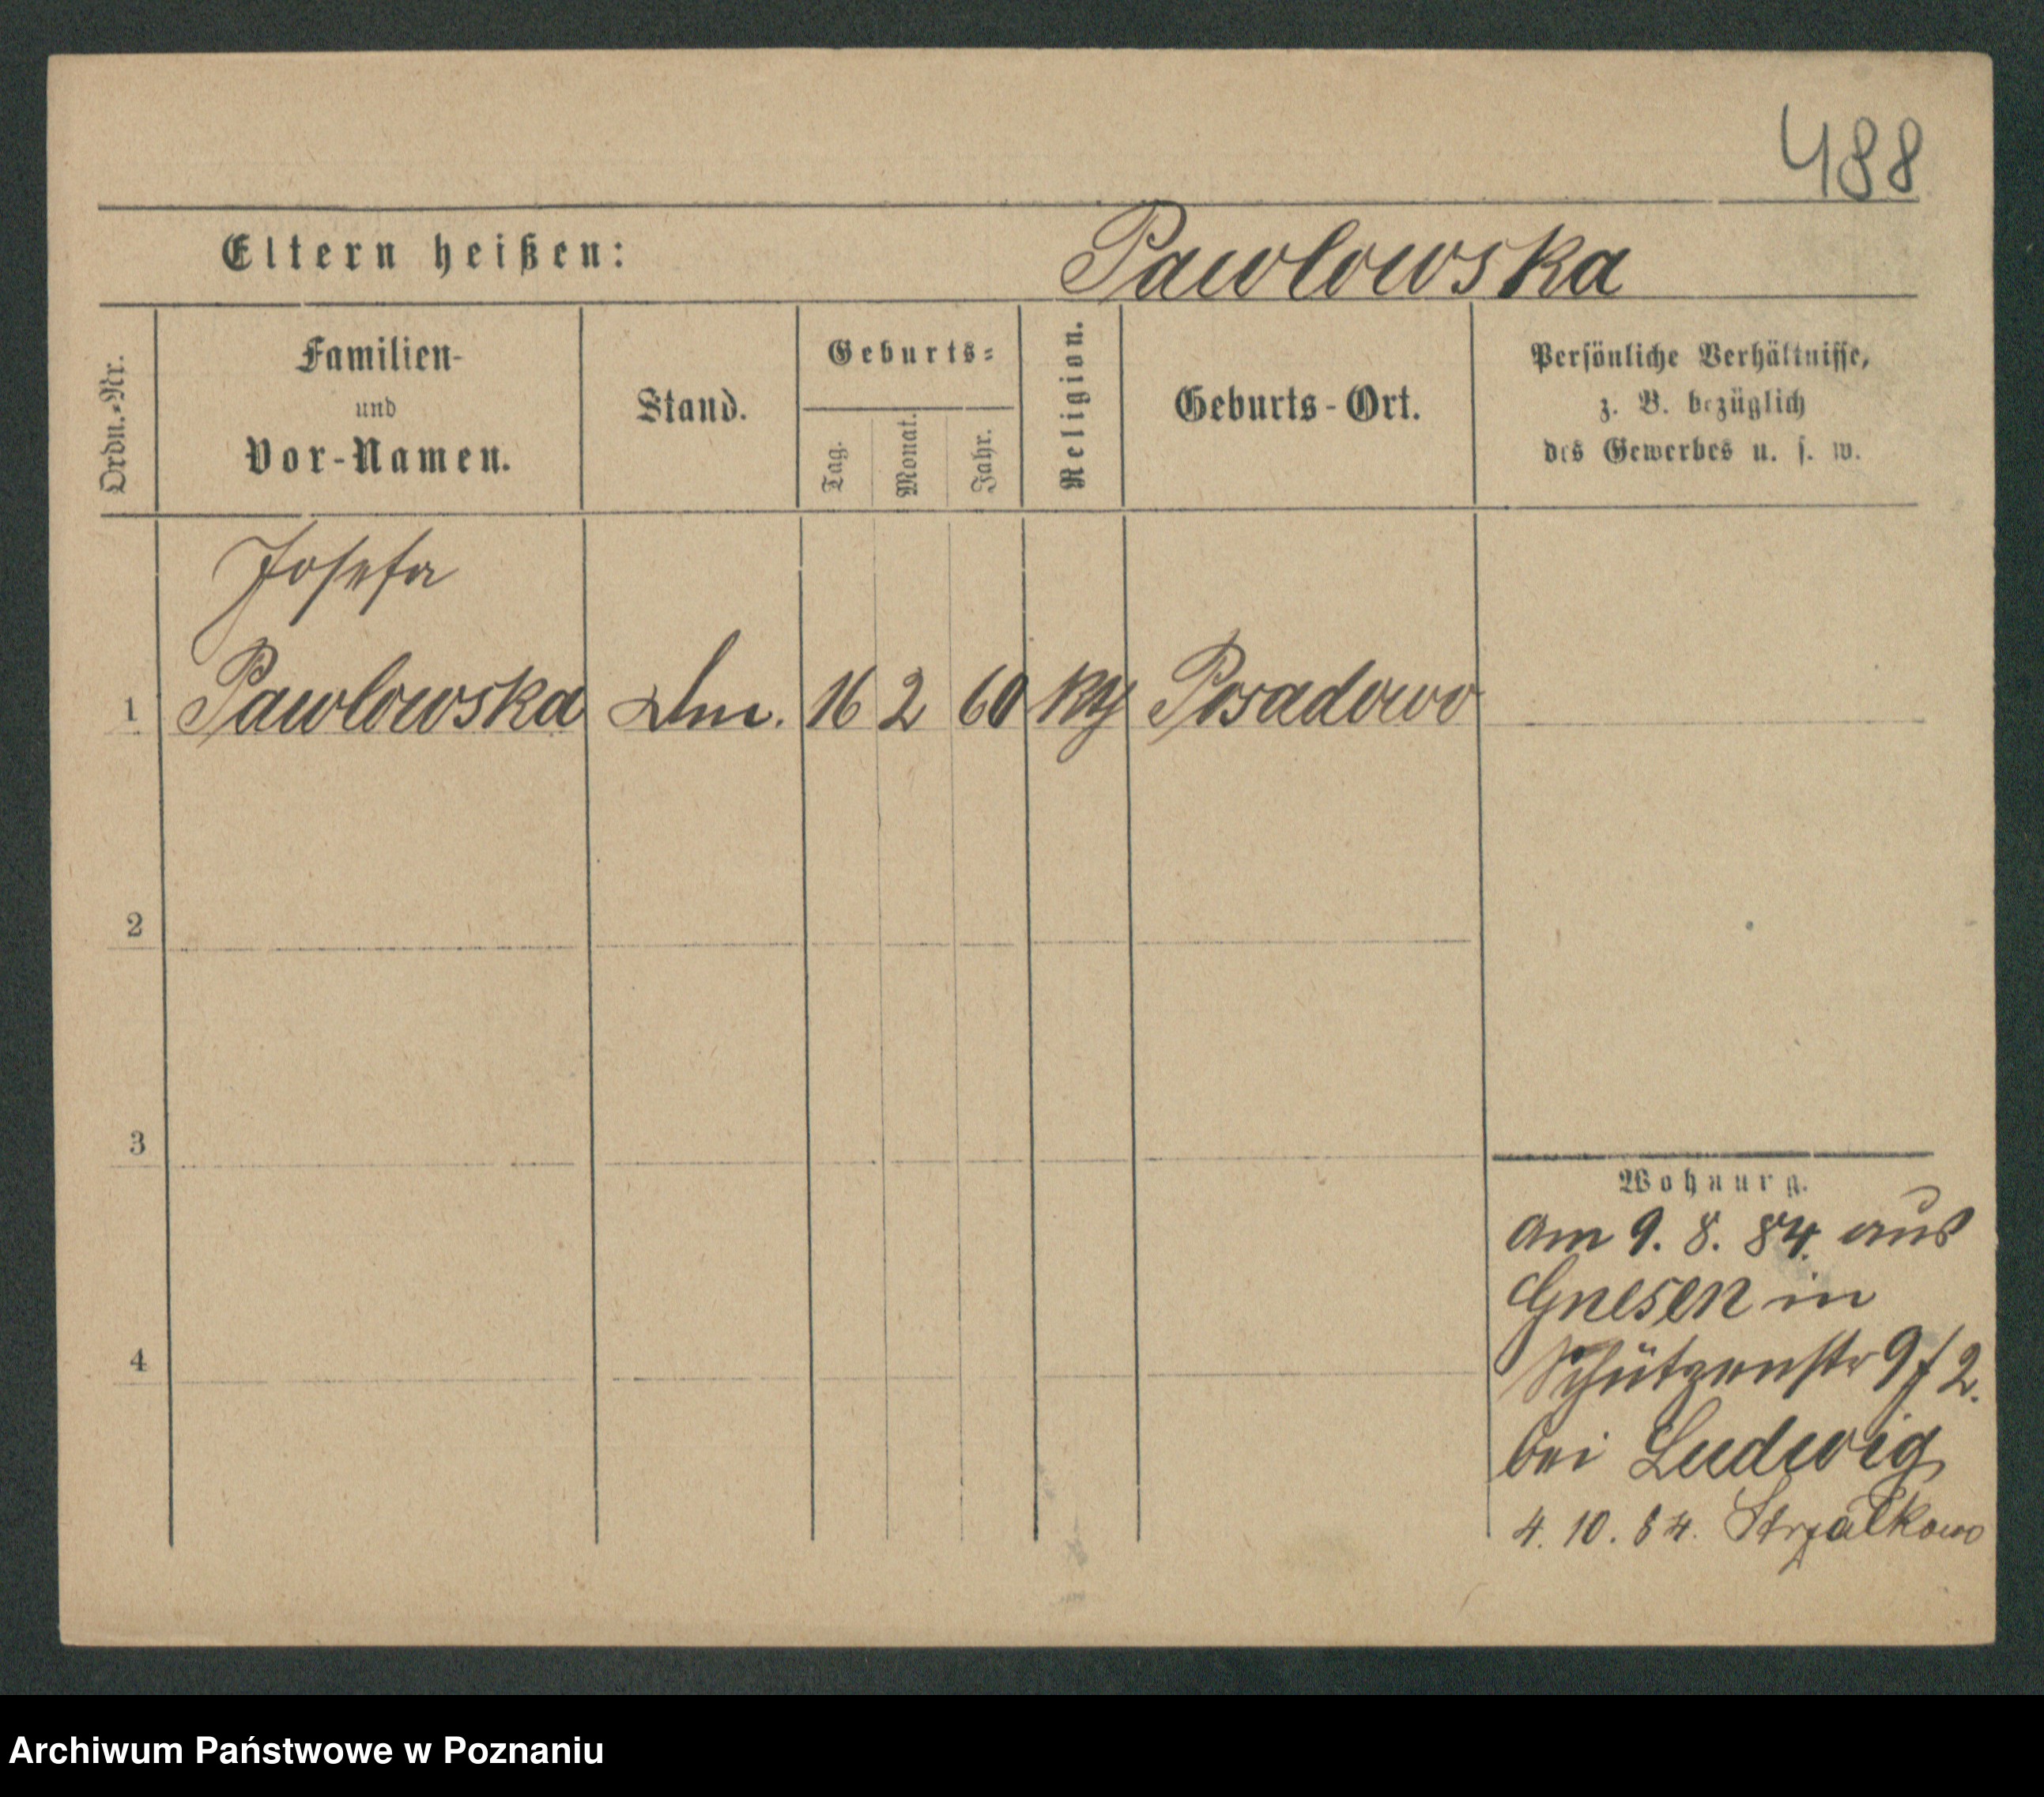 488
Eltern heißen: Pawlowska
Ordn.-Nr.
Familien-
und
Vor-Namen.
Stand.
Geburts-
Tag.
Monat.
Jahr.
Religion.
Geburts-Ort.
Persönliche Verhältnisse,
z. B. bezüglich
des Gewerbes u. s. w.
Josefa
1 Pawlowska 16 2 60 Posadowo
2
3
4
Wohnung.
am 9. 8. 84. aus
Gnesen in
Schützenstr 9/2.
bei Ludwig
4. 10. 84. Strzalkowo
Archiwum Państwowe w Poznaniu